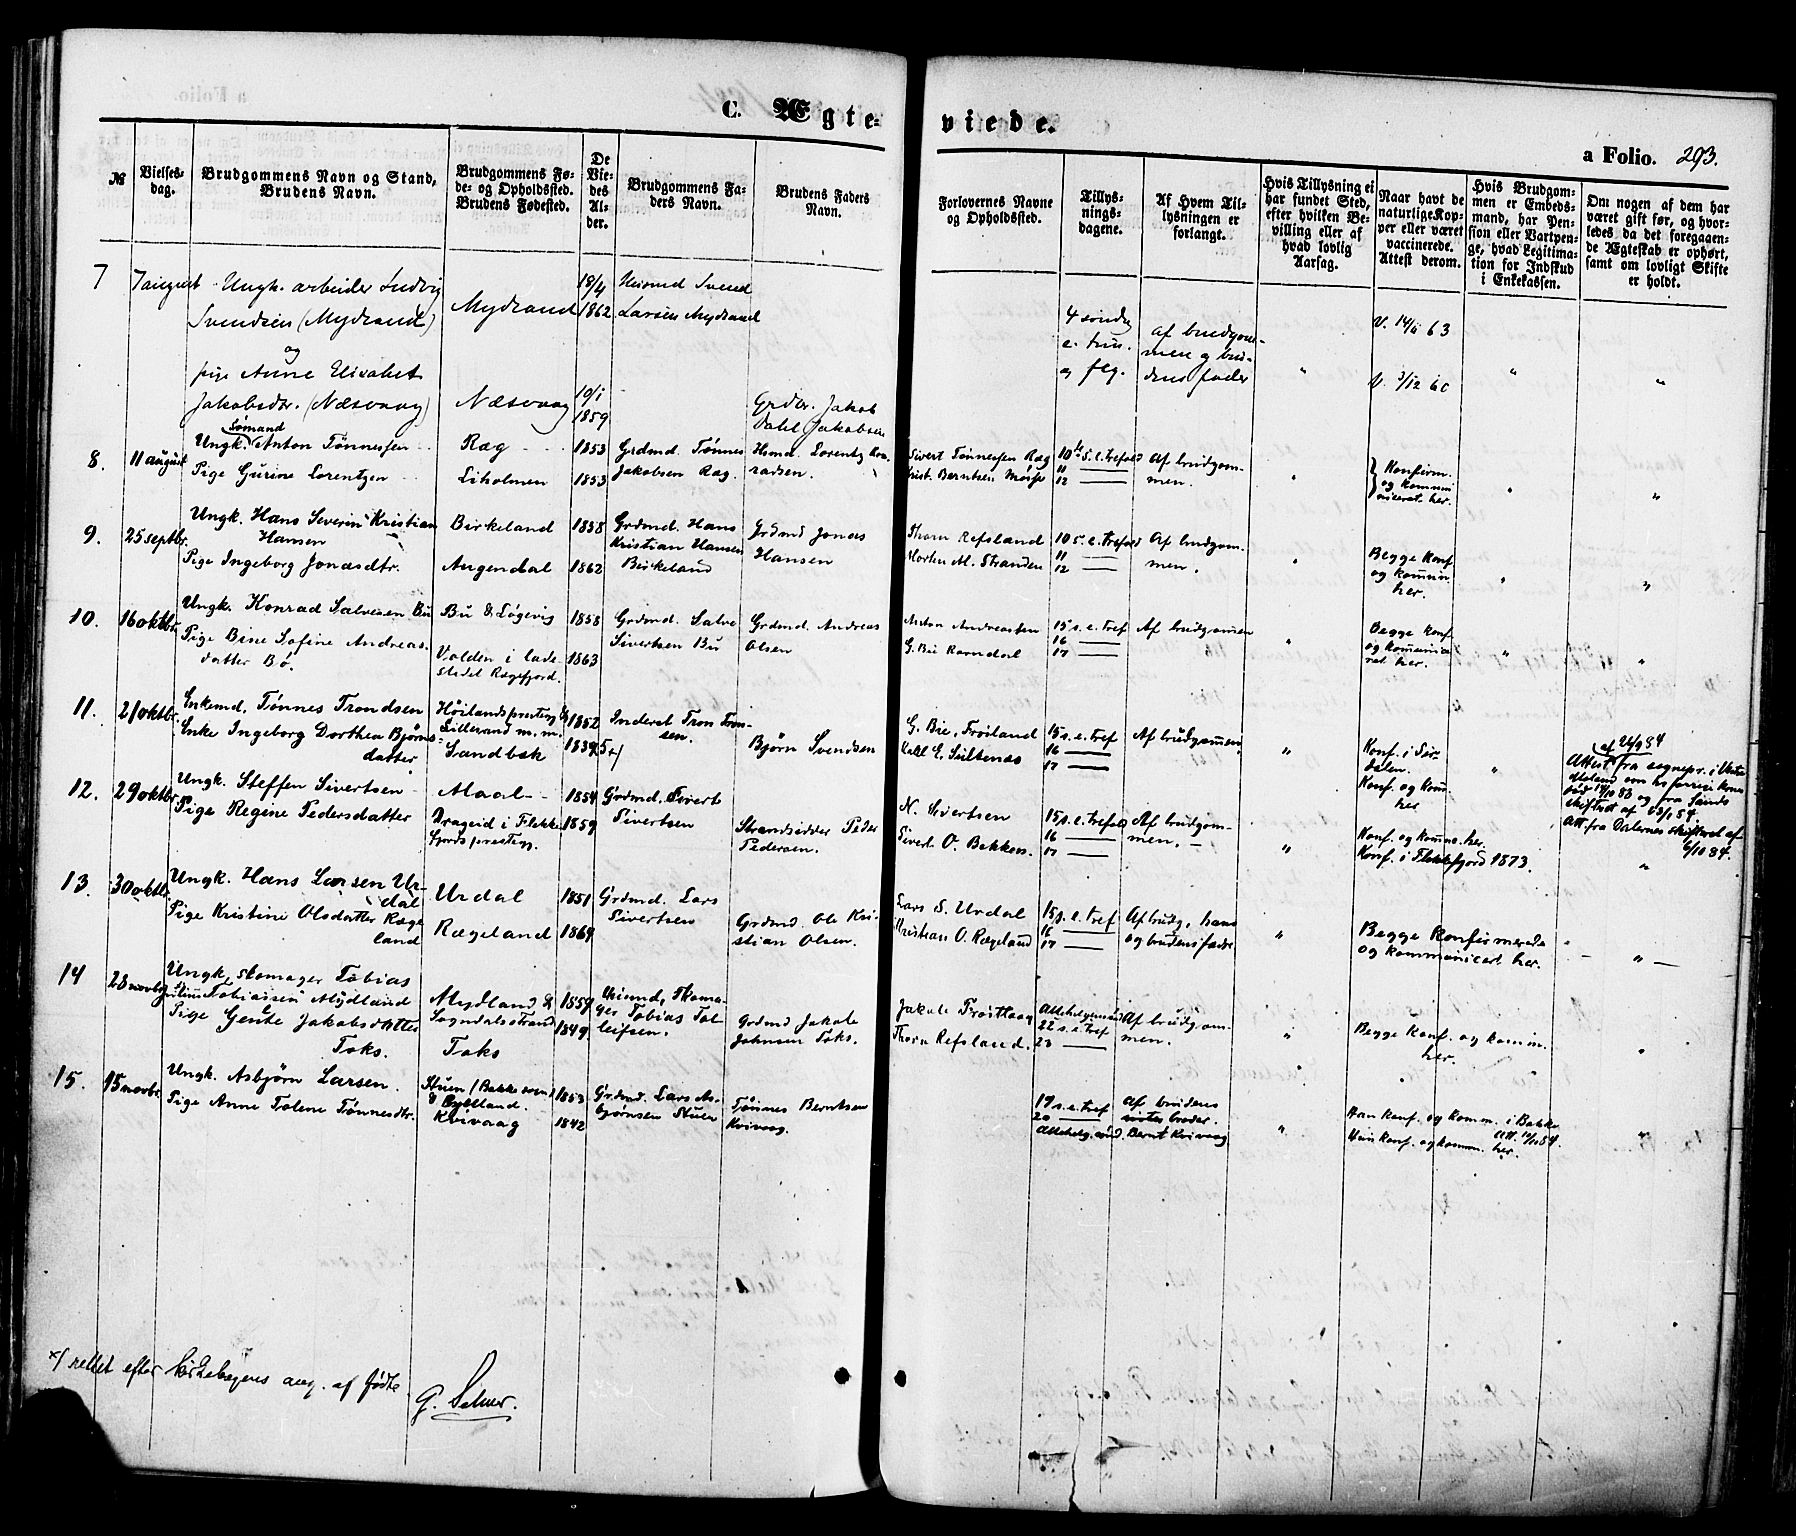 C. Ægte-
viede.
a Folio. 293.
№
Vielses-
dag.
Brudgommens Navn og Stand,
Brudens Navn.
Brudgommens Fø-
de- og Opholdssted.
Brudens Fødested.
De
Vie-
des
Al-
der.
Brudgommens Fa-
ders Navn.
Brudens Faders
Navn.
Forlovernes Navne
og Opholdssted.
Tillys-
nings-
dagene.
Af Hvem Til-
lysningen er
forlangt.
Hvis Tillysning ei
har fundet Sted,
efter hvilken Be-
villing eller af
hvad lovlig
Aarsag.
Naar havt de
naturlige Kop-
per eller været
vaccinerede.
Attest derom.
Hvis Brudgom-
men er Embeds-
mand, har Pen-
sion eller Vartpen-
ge, hvad Legitima-
tion for Indskud
i Enkekassen.
Om nogen af dem har
været gift før, og hvor-
ledes da det foregaaen-
de Ægteskab er ophørt,
samt om lovligt Skifte
er holdt.
7
7 august
Ungk. arbeider Ludvig
Svendsen (Mydland)
og
pige Anne Elisabet
Jakobsdtr. (Næsvaag)
Mydland
Næsvaag
18/4
1862
19/1
1859
Husmd Svend
Larsen Mydland
Grdbr. Jakob
Dahl Jakobsen
4 søndag
e. trin.
og flg.
af brudgom-
men og bru-
dens fader
"
V. 14/11 63
V. 3/12 60
"
"
8.
11 august
Sømand
Ungk. Anton Tønnessen
Pige Gurine Lorentzen
Ræg
Liholmen
1853
1853
Grdmd. Tønnes
Jakobsen Ræg
Hsmd. Lorentz Kon-
radsen.
Sivert Tønnessen Ræg
Krist. Berntsen
10de S. e. trefold
11 —
12 —
Af brudgom-
men.
"
Konfirm.
og kommu-
niceret her.
"
"
9.
25 septbr.
Ungk. Hans Severin Kristian
Hansen
Pige Ingeborg Jonasdtr.
Birkeland
Augendal
1858
1862
Grdmd. Hans
Kristian Hansen
Birkeland
Grdmd Jonas
Hansen
Thorn Refsland
Morten M. Stranden
10 s. e. trefold
11 —
12 —
Af brudgom-
men.
"
Begge Konf
og kommun.
her.
"
"
10.
16 oktbr.
Ungk. Konrad Salvesen Bu
Pige Bine Sofine Andreas-
datter Bø.
Bu & Løgevis
Valden i lade-
stedet Rægefjord.
1858
1863
Grdmd. Salve
Sivertsen Bu
Grdmd. Andreas
Olsen
Anton Andreassen
G. Bie Ramdal
15 s. e. tref
16 —
17 —
Af brudgommen
"
Begge Konf.
og kommunice-
ret her.
"
"
11.
21 oktbr.
Enkemd. Tønnes Trondsen
Enke Ingeborg Dorthea Bjørns-
datter
Høilands prestegj. &
Lillesand m. m.
Sandbek
1852
1839
Inderst Tron Tron-
sen.
Bjørn Svendsen
G. Bie, Frøiland
15 s. e. tref
16 —
17 —
Af brudgommen
"
Konf. i Sir-
dalen.
Konf. og kom.
her
"
af 24/9 84
Attest fra sognepr. i
12.
29 oktbr.
Ungk. Steffen Sivertsen
Pige Regine Pedersdatter
Maal
Drageid i Flekke-
fjords prestegj.
1854
1859
Grdmd. Sivert
Sivertsen
Strandsidder Peder
Pedersen.
N. Sivertsen
Sivert O. Bakken.
15 s. e. trefold
16 —
17 —
Af brudgom-
men. —
"
Konf. og komm. her.
Konf. i Flekkefjord 1873.
Att. fra Dalernes skifteret af
6/10 84.
"
13.
30 oktbr.
Ungk. Hans Larsen Ur-
dal
Pige Kristine Olsdatter Ræge
land
Urdal
Rægeland
1851
1864
Grdmd. Lars
Sivertsen
Grdmd. Ole Kri-
stian Olsen.
Lars S. Urdal
Kristian O. Rægeland
15 s. e. tref
16 —
17 —
Af brudg. hans
og brudens fader
"
Begge Konfirmerede
og kommuniceret her.
"
— " —
14
28 novbr.
Ungk. skomager Tobias
Tobiassen Mydland
Pige Gente Jakobsdatter
Toks.
Mydland &
Sogndalsstrand
Toks
1859
1849
Husmd, Skoma-
ger Tobias Tol-
leifsen.
Grdmd Jakob
Johnsen Toks.
Jakob Frøitland
Thorn Refsland.
Allehelgensd
22 s. e. tref
23 —
Af brudgom-
men.
"
Begge Konf. og komm.
her.
"
15.
15 novbr.
Ungk. Asbjørn Larsen.
Pige Anne Tolene Tønnesdtr.
Stuen (Bakke sogn)
& Egelland.
Kvivaag
1853
1842
Grdmd. Lars As-
bjørnsen Stuen
Tønnes Berntsen
Kvivaag.
19 s. e. tref
20 —
Allehelg. sønd.
Af brudens
broder.
Bernt Kvivaag
"
Han konf. og komm. i Bakke
Hun konf. og komm. her.
"
x/ rettet efter kirkebogens ang. af fødte
G. Selmer.